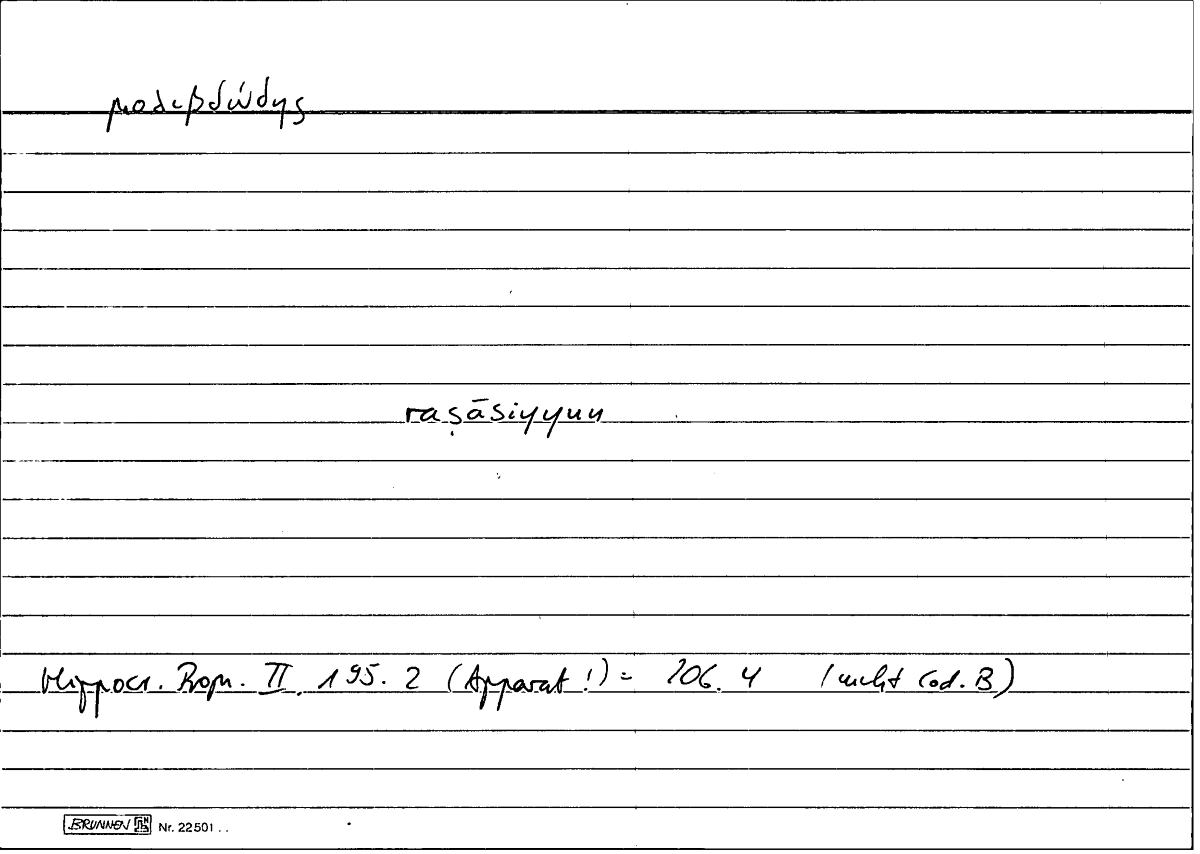 μολιβδώδης
raṣāsiyyun
Hippocr. Progn. II, 195. 2 (Apparat!) = 206. 4 (nicht Cod. B)
BRUNNEN Nr. 22501 . .